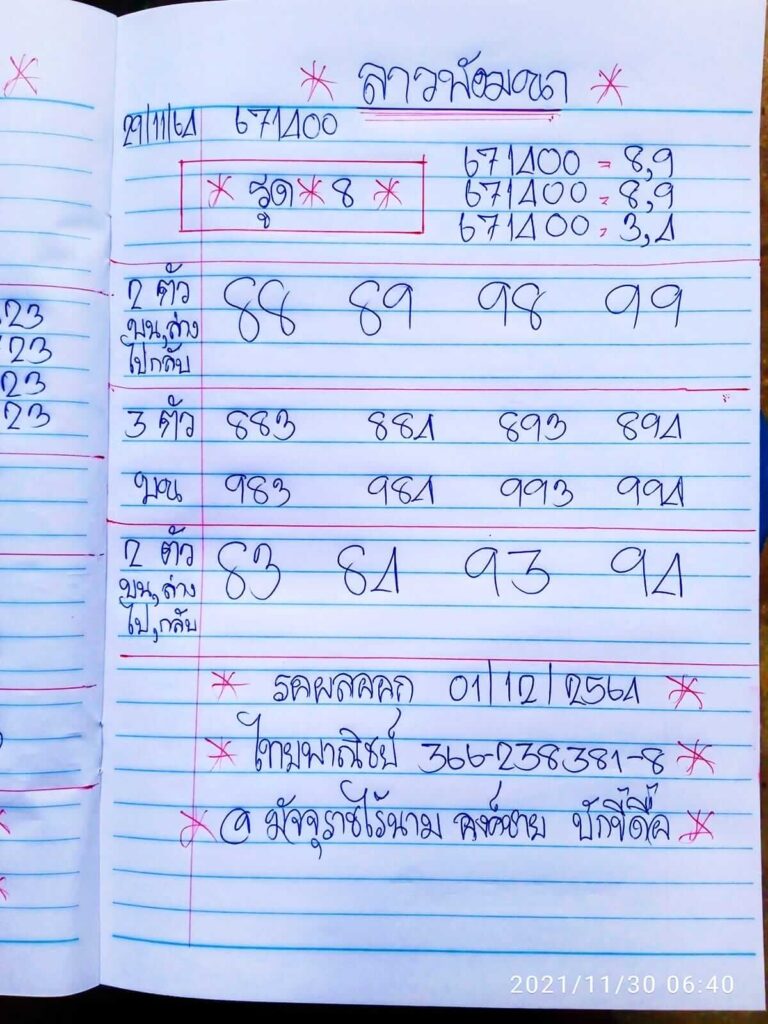 ลาวพัฒนา
29/11/64 671400
671400 = 8,9
671400 = 8,9
671400 = 3,4
รูด 8
2 ตัว 88 89 98 99
บน,ล่าง
ไปกลับ
3 ตัว 883 884 893 894
บน 983 984 993 994
2 ตัว 83 84 93 94
บน,ล่าง
ไป,กลับ
รอผลออก 01/12/2564
ไทยพาณิชย์ 366-238381-8
@ มัจจุราชไร้นาม องค์ชาย บักขี้ดื้อ
23
23
23
23
2021/11/30 06:40